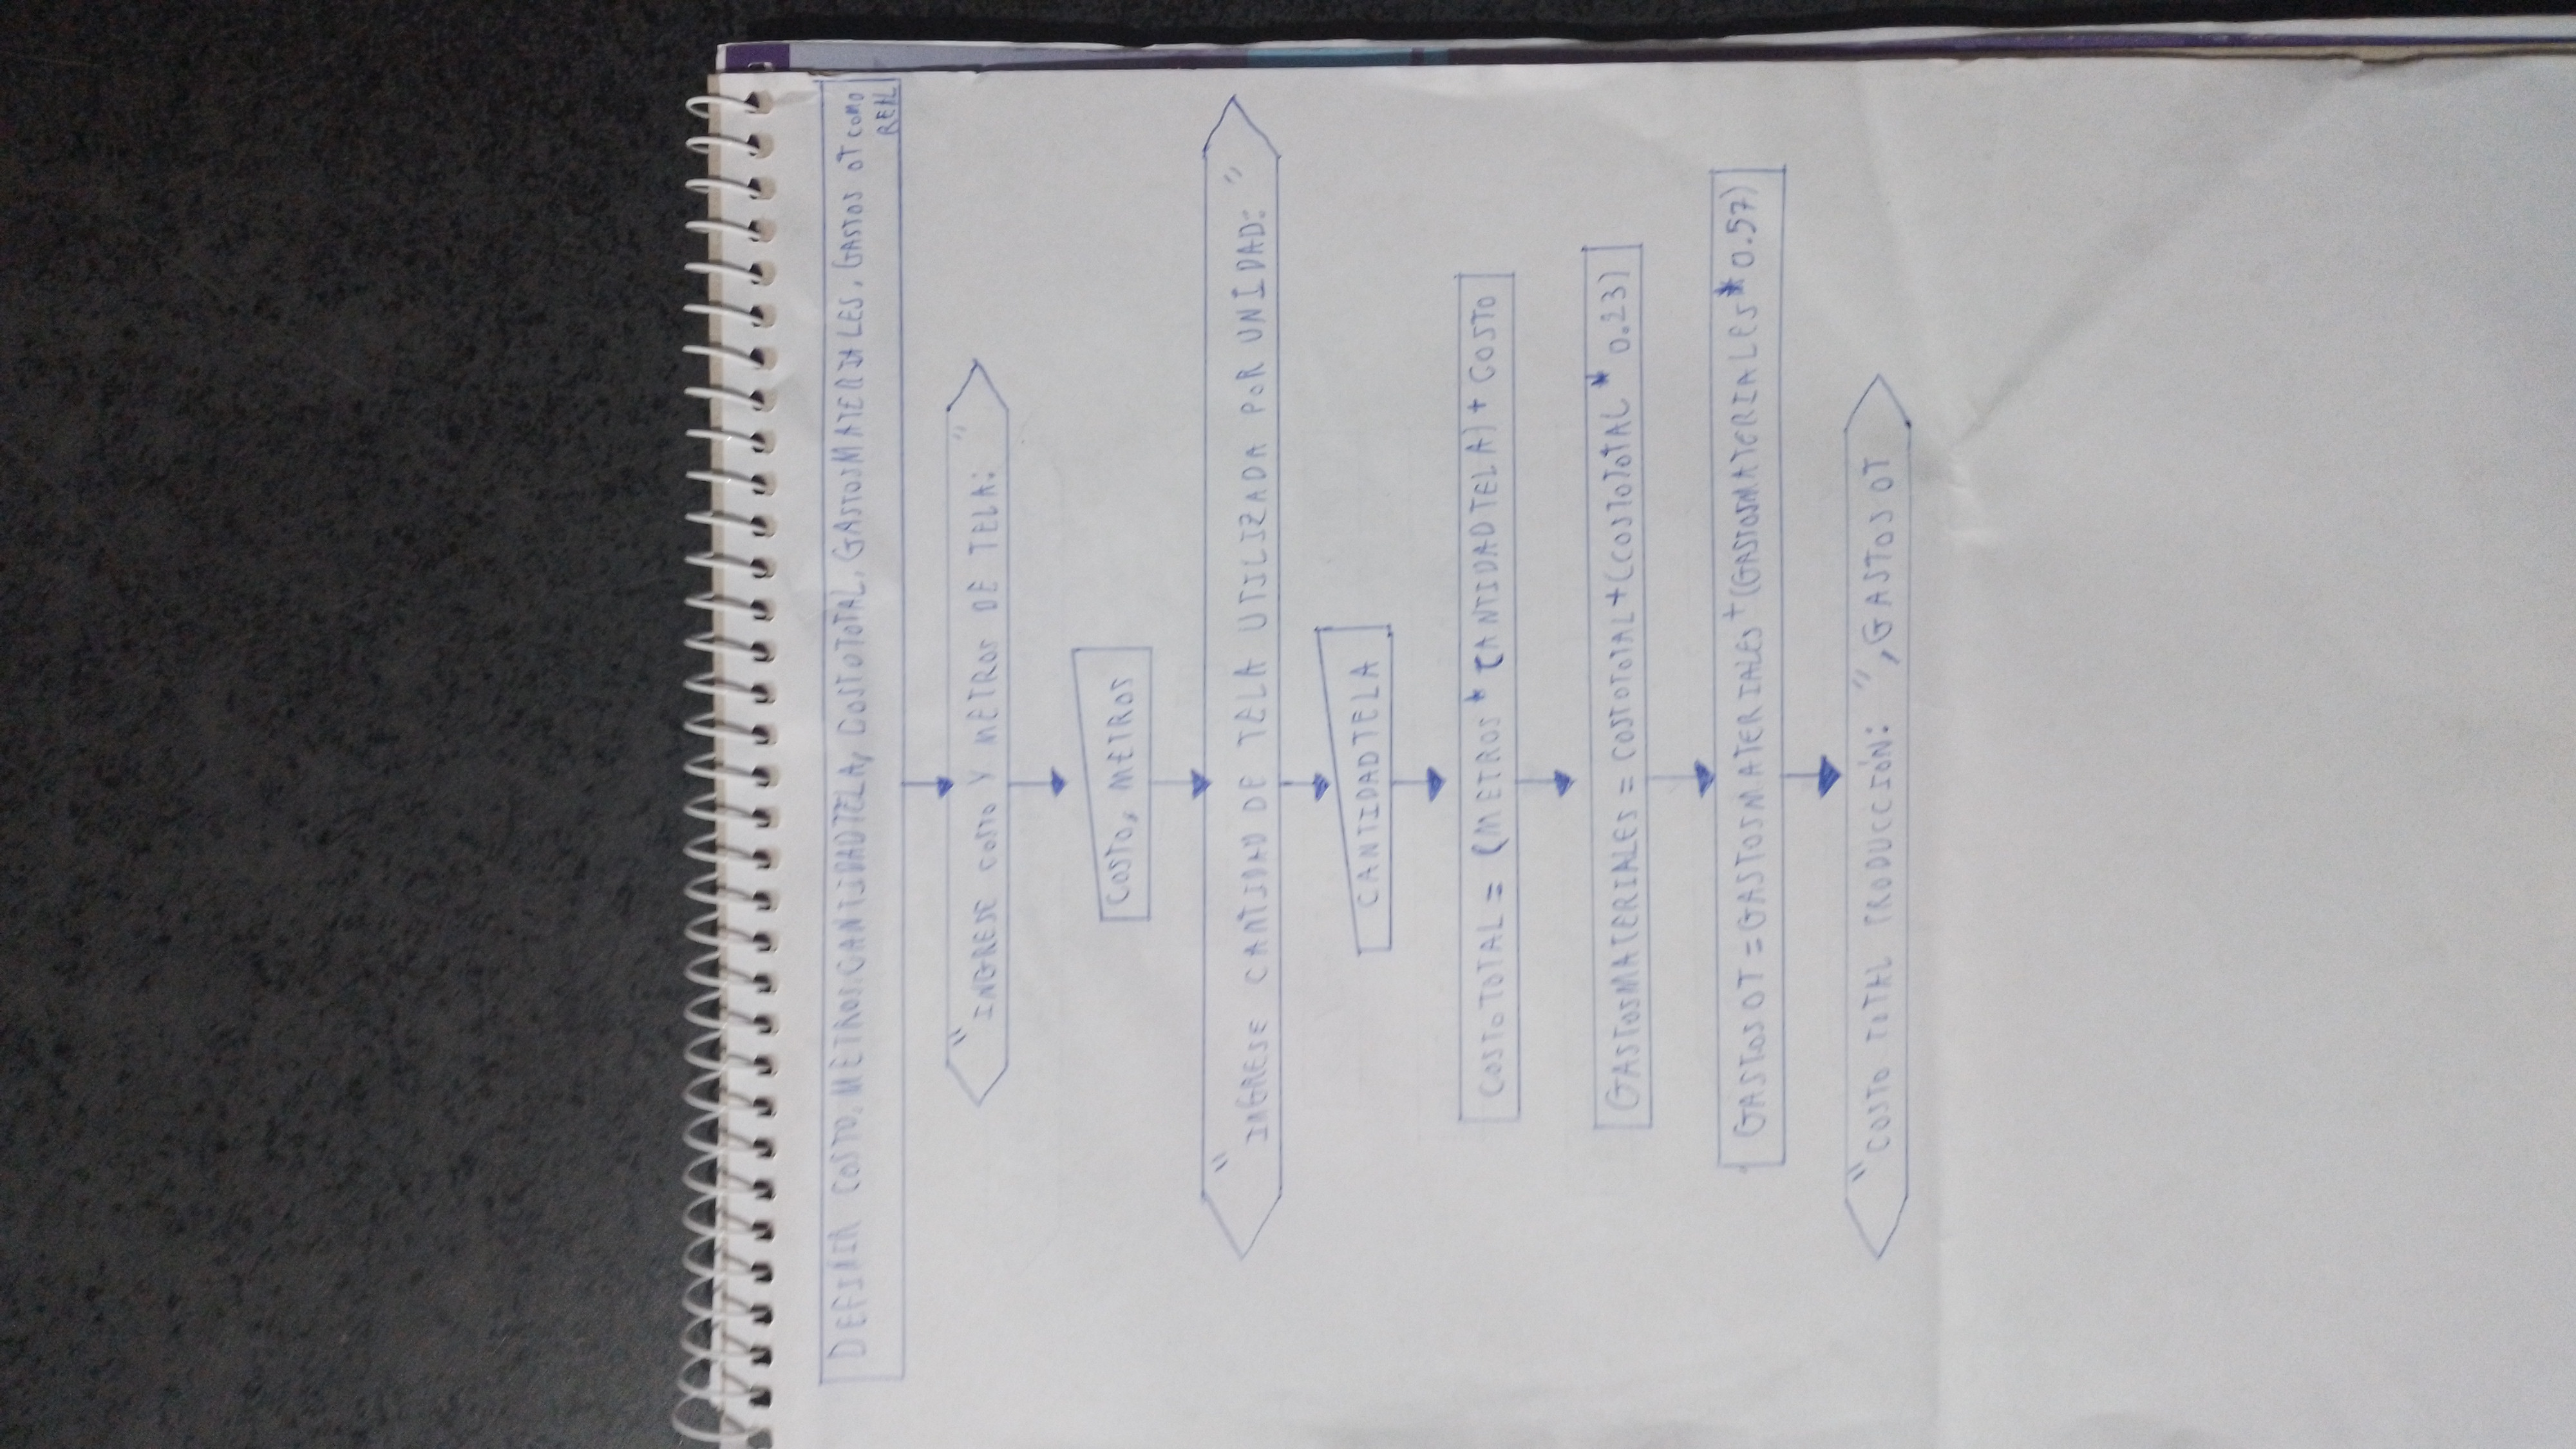 DEFINIR COSTO, METROS, CANTIDADTELA, COSTOTOTAL, GASTOSMATERIALES, GASTOS OT COMO
REAL
"INGRESE COSTO Y METROS DE TELA: "
COSTO, METROS
"INGRESE CANTIDAD DE TELA UTILIZADA POR UNIDAD: "
CANTIDADTELA
COSTOTOTAL = (METROS * CANTIDADTELA) + COSTO
GASTOSMATERIALES = COSTOTOTAL + (COSTOTOTAL * 0.23)
GASTOSOT = GASTOSMATERIALES + (GASTOSMATERIALES * 0.57)
"COSTO TOTAL PRODUCCIÓN: ", GASTOSOT